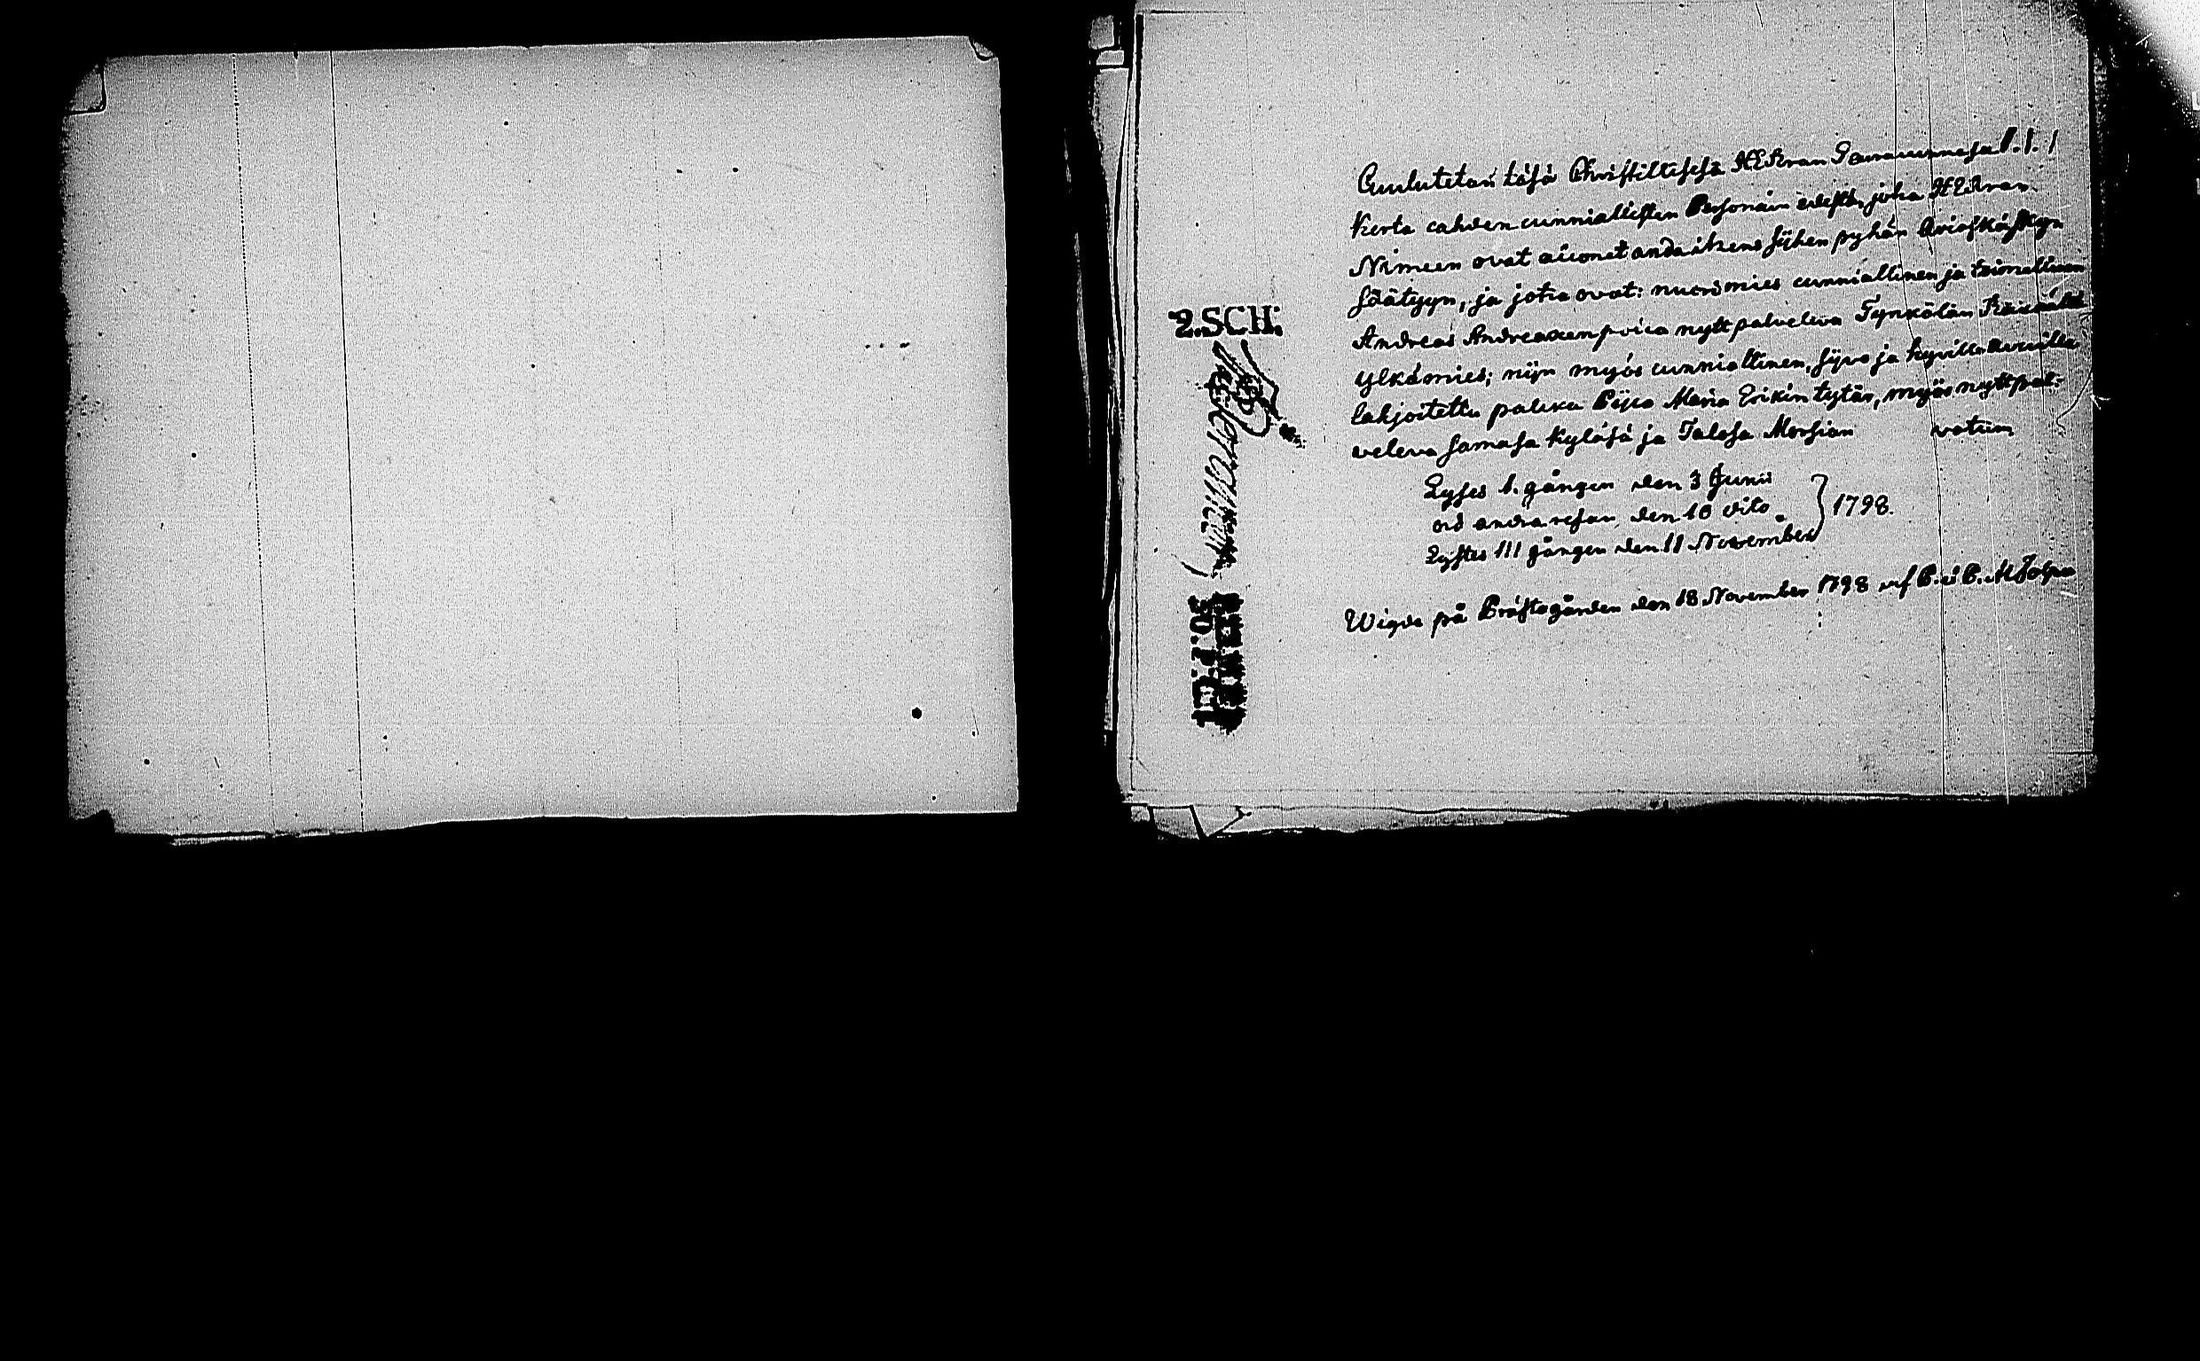 Cuulutetan täsä Christillisesä HERran Seuracunnasa I. I. I
kerta cahden cunniallisten Personain edestä, jotca HERran
Nimeen ovat aiconet anda itzens sijhen pyhän Avioskäskyn
säätyyn, ja jotca ovat: nuorimies cunniallinen ja toimellinen
Andreas Andreaxenpoica nytt palveleva Tynkälän
Ylkämies; nijn myös cunniallinen, sijvo ja hyvillä avuilla
lahjoitettu palcka Pijca Maria Erikin tytär, myös nytt pal-
veleva samasa Kyläsä ja Talosa Morsian votum
Lystes 1. gången den 3 Junii
och andra resan den 10 dito
Lystes III gången den 11 November
1798.
Wigde på Prästegården den 18 November 1798 af
2.SCH.